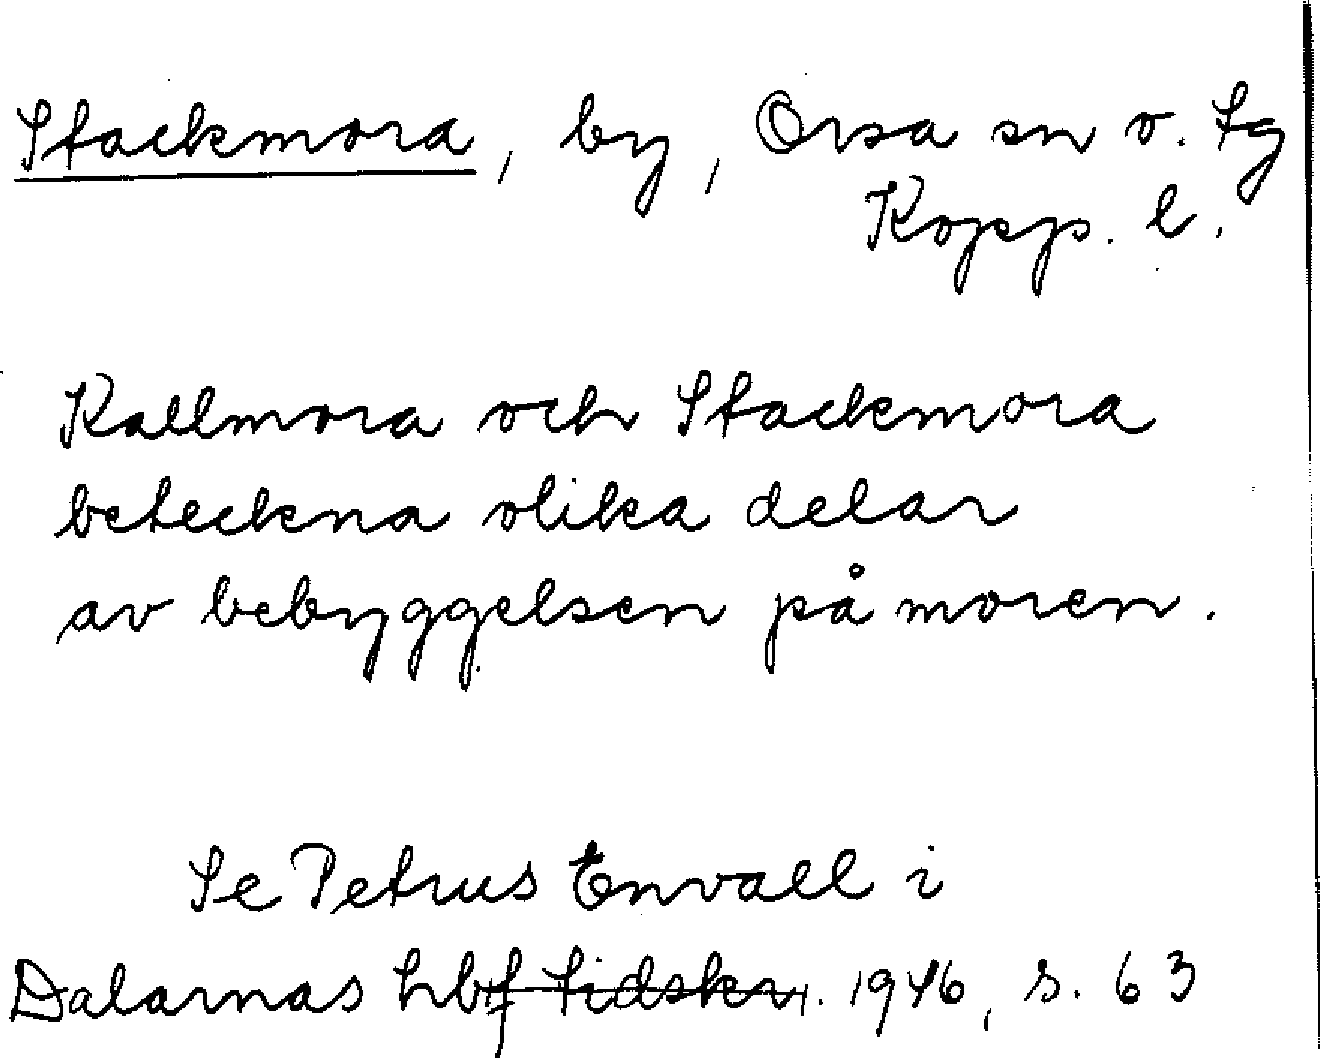 Stackmora, by, Orsa sn o. tg
Kopp. l.
Kallmora och Stackmora
beteckna olika delar
av bebyggelsen på moren.
Se Petrus Envall i
Dalarnas hbf tidskr. 1946, s. 63